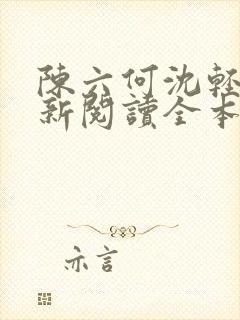 陳六何沈輕
新閱讀全本
亦言